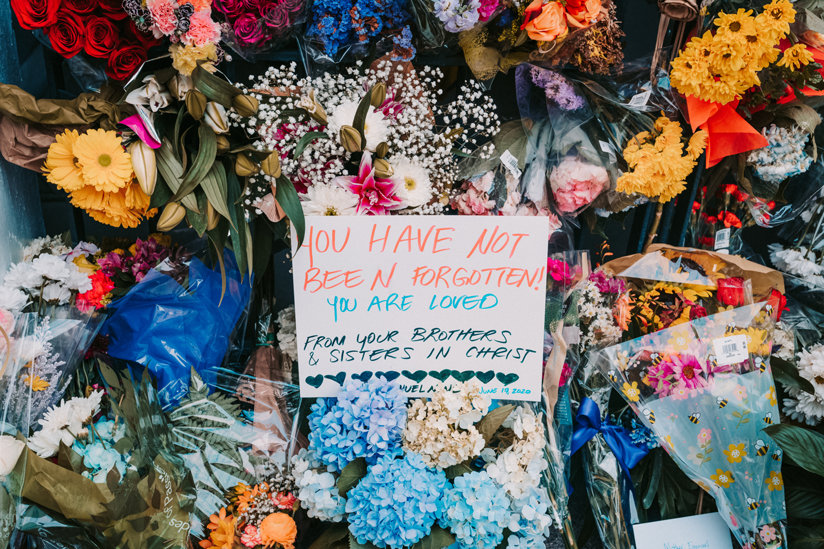 YOU HAVE NOT
BEEN FORGOTTEN!
YOU ARE LOVED
FROM YOUR BROTHERS
& SISTERS IN CHRIST
June 19, 2020